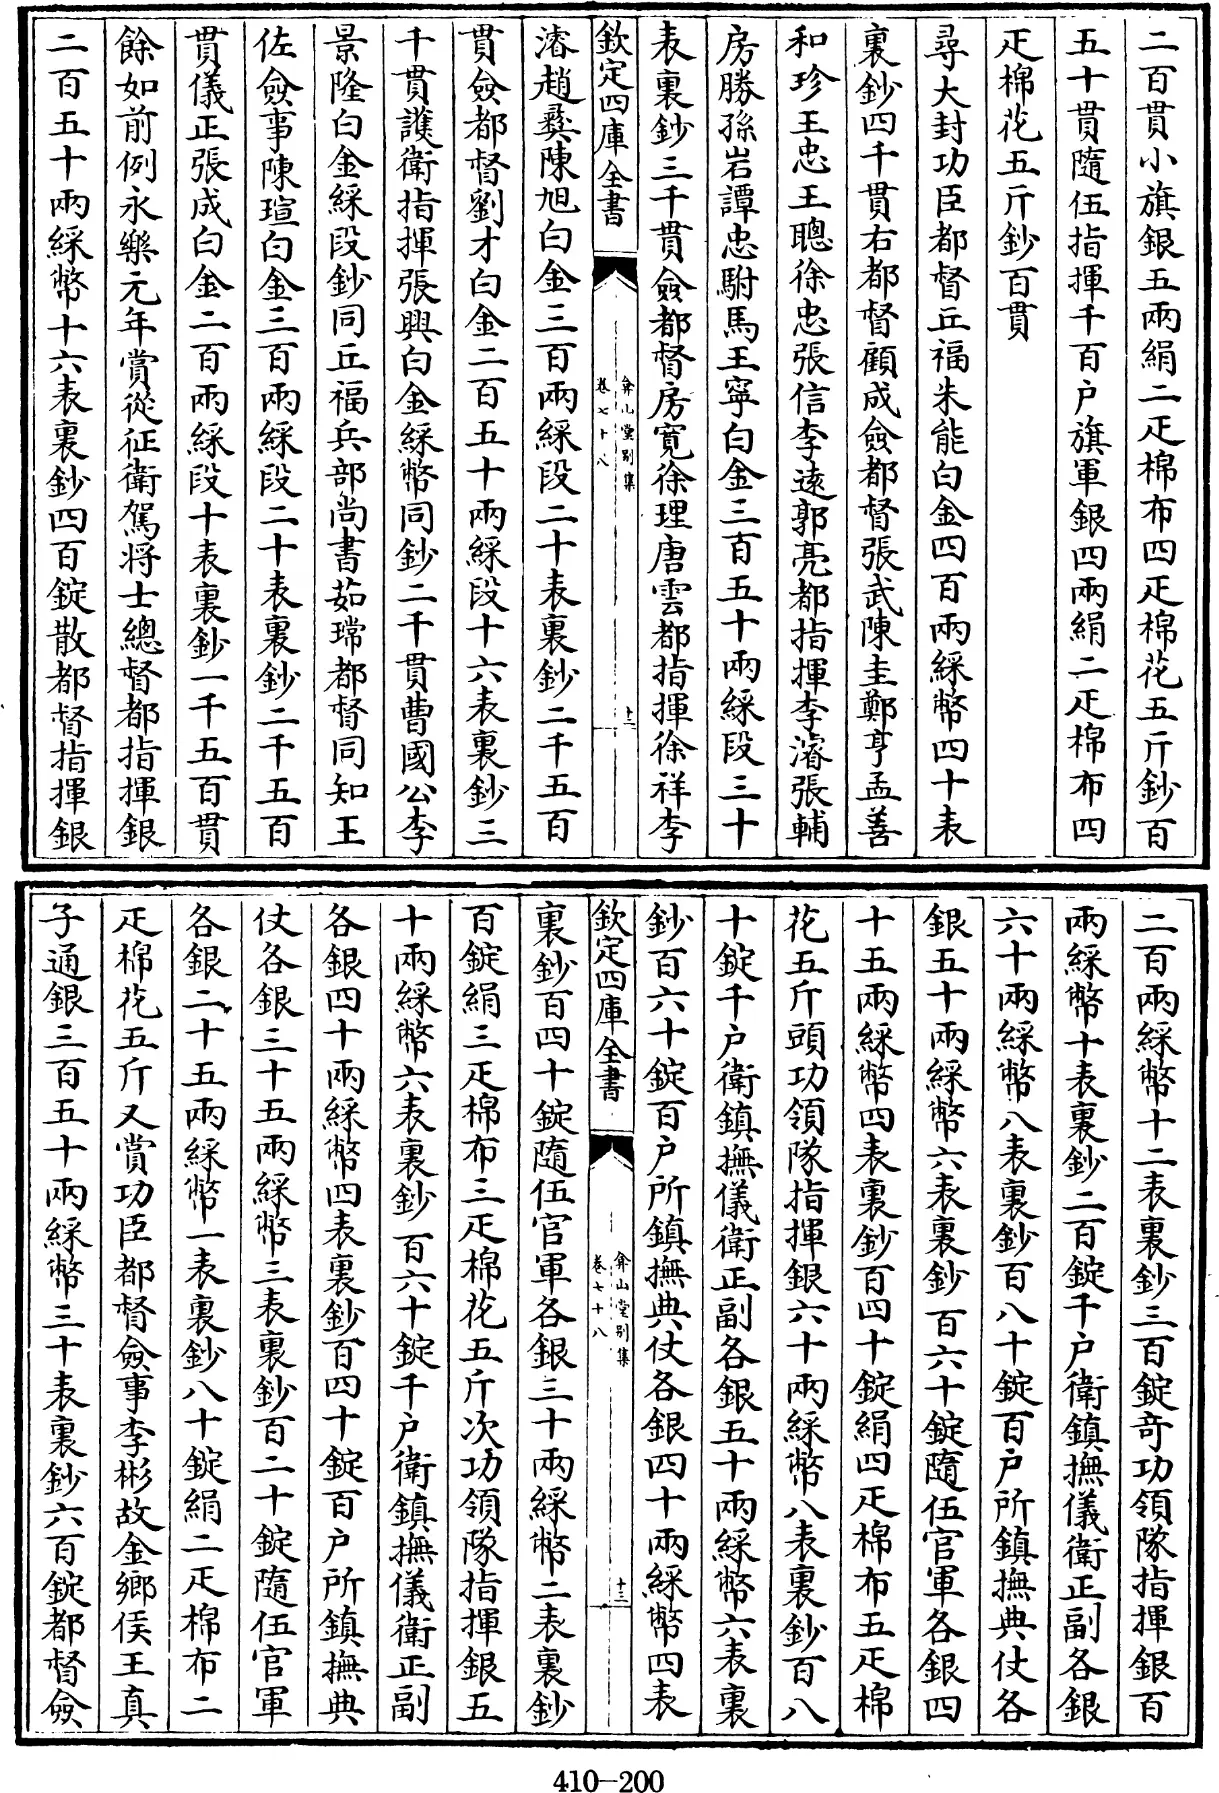 二百貫小旗銀五兩絹二疋棉布四疋棉花五斤鈔百
五十貫隨伍指揮千百户旗軍銀四兩絹二疋棉布四
疋棉花五斤鈔百貫
尋大封功臣都督丘福朱能白金四百兩綵幣四十表
裏鈔四千貫右都督顧成僉都督張武陳圭鄭亨孟善
和珍王忠王聰徐忠張信李遠郭亮都指揮李濬張輔
房勝孫岩譚忠駙馬王寧白金三百五十兩綵段三十
表裏鈔三千貫僉都督房寛徐理唐雲都指揮徐祥李
欽定四庫全書
弇山堂别集
卷七十八
十二
濬趙彝陳旭白金三百兩綵段二十表裏鈔二千五百
貫僉都督劉才白金二百五十兩綵段十六表裏鈔三
千貫護衛指揮張興白金綵幣同鈔二千貫曹國公李
景隆白金綵段鈔同丘福兵部尚書茹瑺都督同知王
佐僉事陳瑄白金三百兩綵段二十表裏鈔二千五百
貫儀正張成白金二百兩綵段十表裏鈔一千五百貫
餘如前例永樂元年賞從征衛駕將士總督都指揮銀
二百五十兩綵幣十六表裏鈔四百錠散都督指揮銀
二百兩綵幣十二表裏鈔三百錠奇功領隊指揮銀百
兩綵幣十表裏鈔二百錠千户衛鎮撫儀衛正副各銀
六十兩綵幣八表裏鈔百八十錠百户所鎮撫典仗各
銀五十兩綵幣六表裏鈔百六十錠隨伍官軍各銀四
十五兩綵幣四表裏鈔百四十錠絹四疋棉布五疋棉
花五斤頭功領隊指揮銀六十兩綵幣八表裏鈔百八
十錠千户衛鎮撫儀衛正副各銀五十兩綵幣六表裏
鈔百六十錠百户所鎮撫典仗各銀四十兩綵幣四表
欽定四庫全書
弇山堂别集
卷七十八
十三
裏鈔百四十錠隨伍官軍各銀三十兩綵幣二表裏鈔
百錠絹三疋棉布三疋棉花五斤次功領隊指揮銀五
十兩綵幣六表裏鈔百六十錠千户衛鎮撫儀衛正副
各銀四十兩綵幣四表裏鈔百四十錠百户所鎮撫典
仗各銀三十五兩綵幣三表裏鈔百二十錠隨伍官軍
各銀二十五兩綵幣一表裏鈔八十錠絹二疋棉布二
疋棉花五斤又賞功臣都督僉事李彬故金鄉侯王真
子通銀三百五十兩綵幣三十表裏鈔六百錠都督僉
410-200